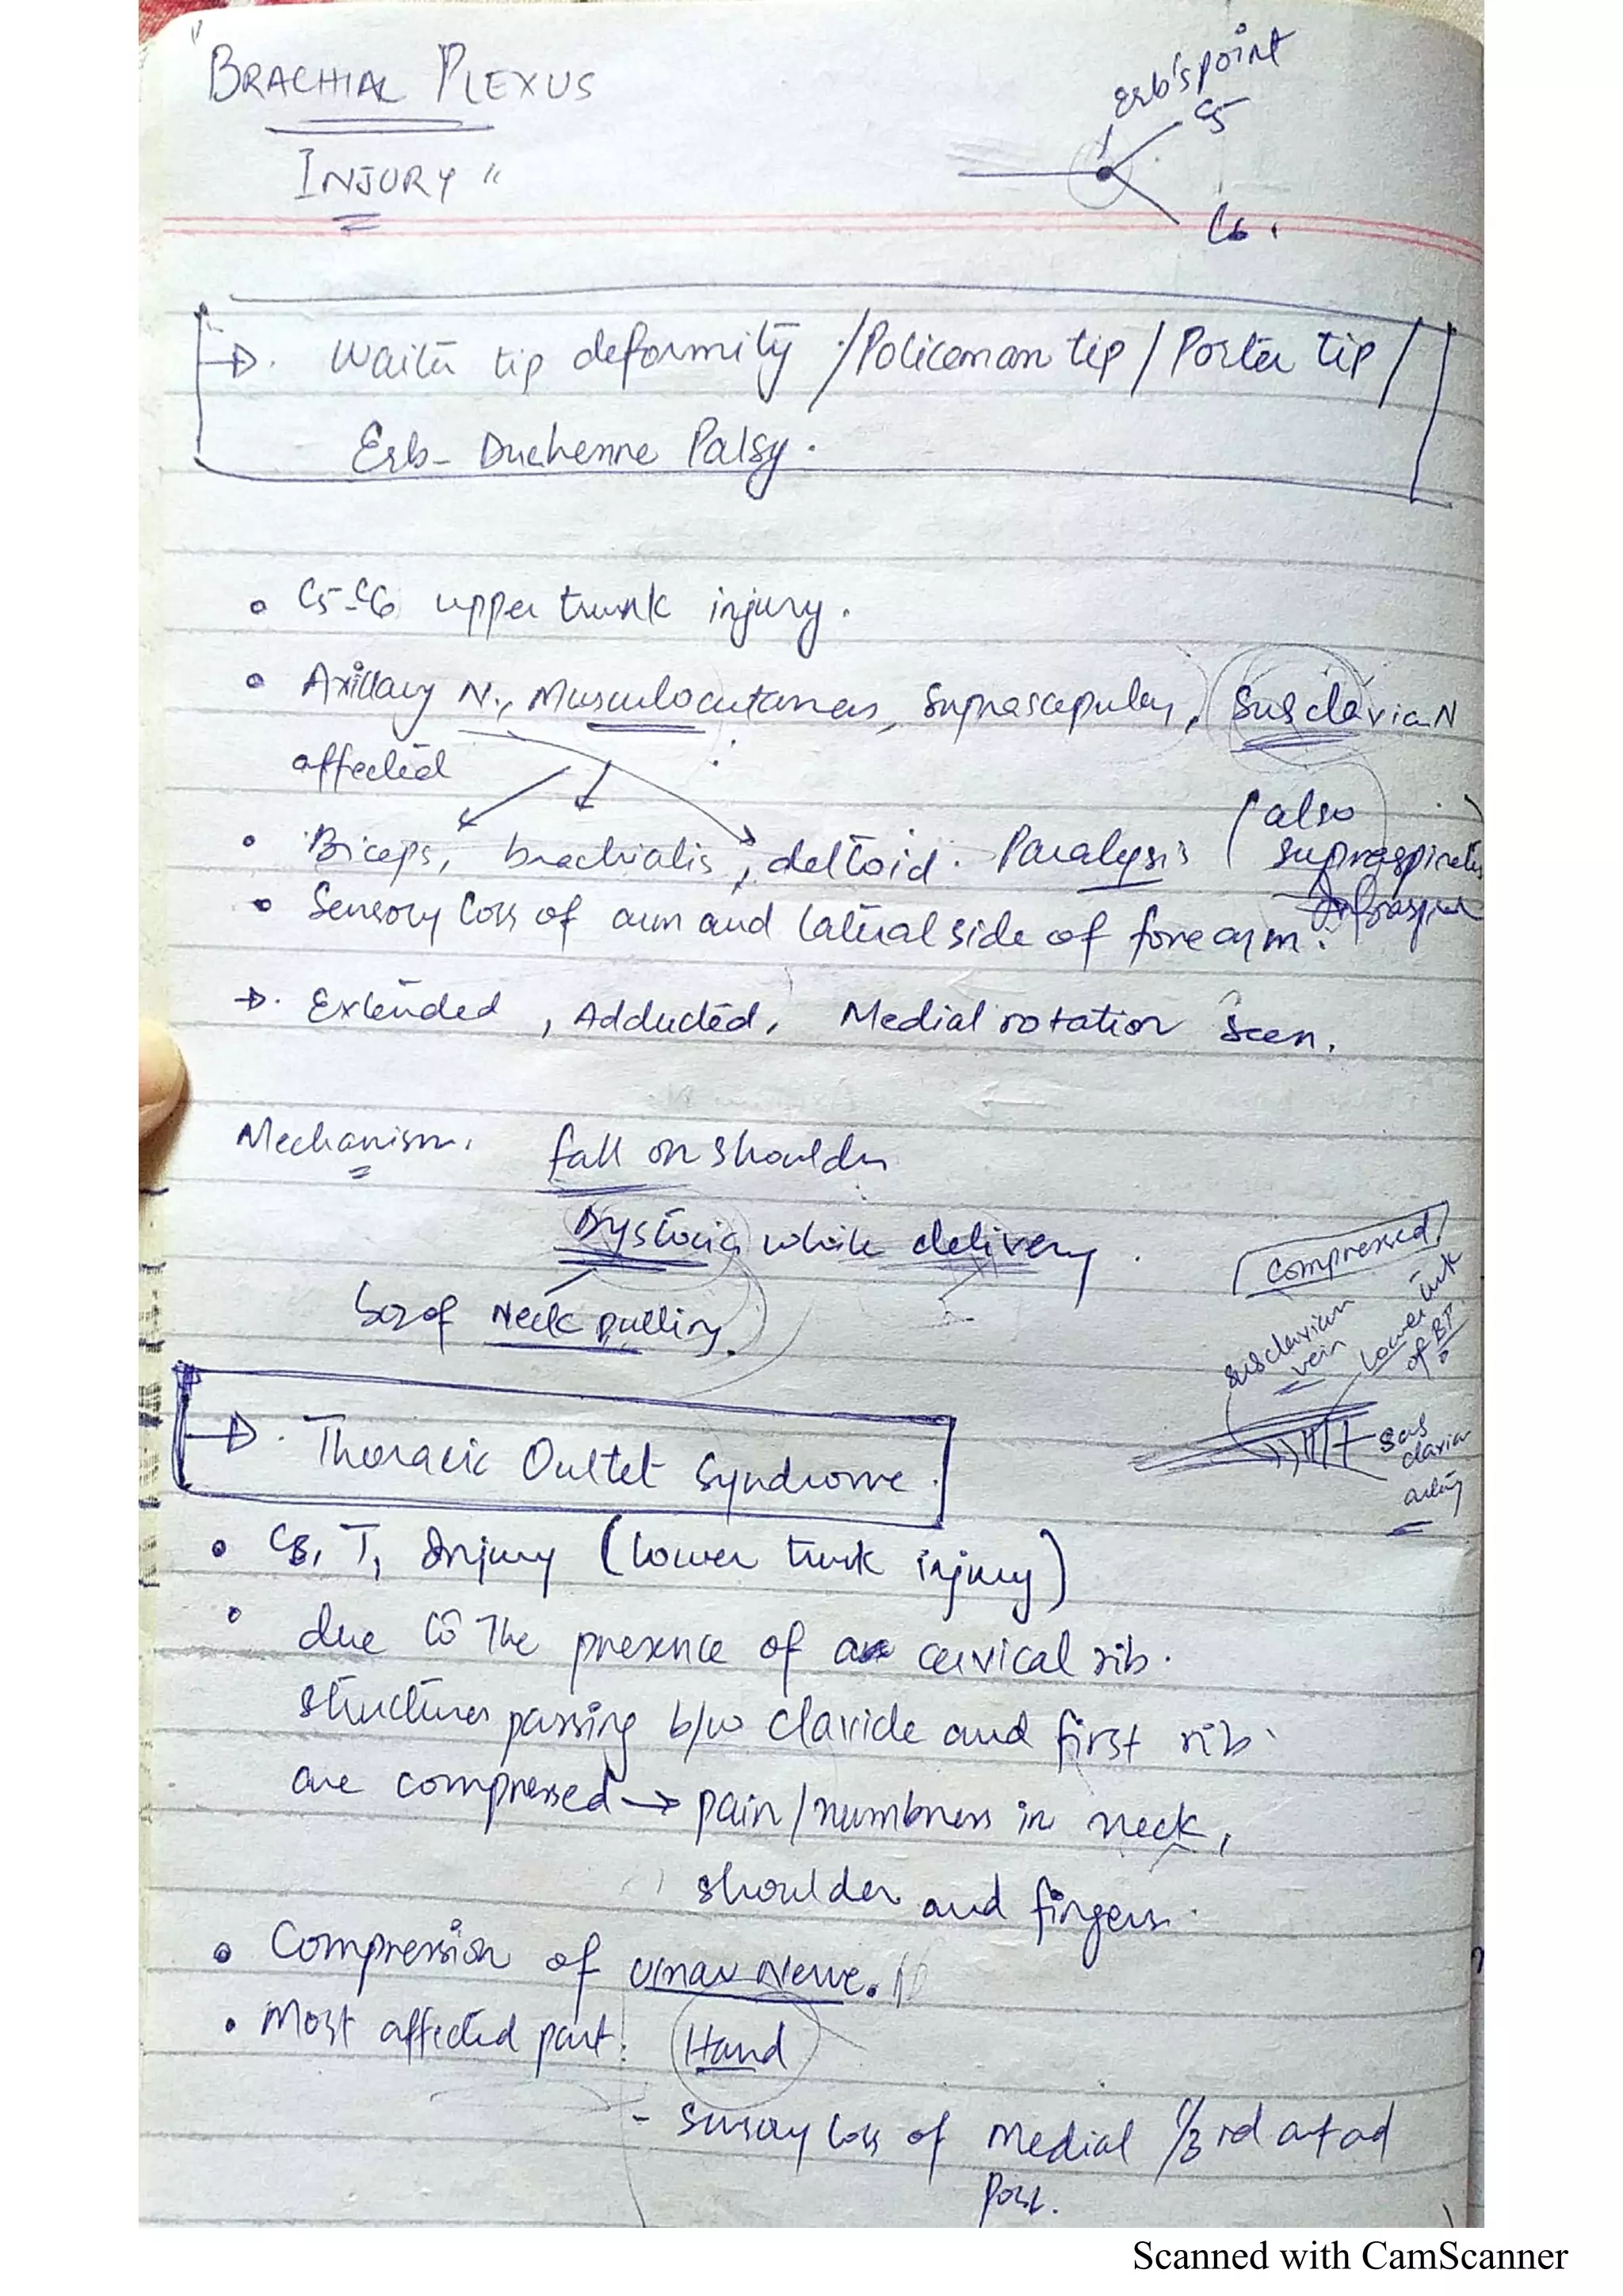 "BRACHIAL PLEXUS
INJURY"
Erb's point
C5
C6.
→ Waiter tip deformity / Policeman tip / Porter tip /
Erb-Duchenne Palsy.
• C5-C6 upper trunk injury.
• Axillary N., Musculocutaneous, Suprascapular, Subclavian N
affected
• Biceps, brachialis, deltoid. Paralysis (also
supraspinatus
• Sensory loss of arm and lateral side of forearm.
→ Extended, Adducted, Medial rotation seen.
Mechanism. fall on shoulder
Dystocia while delivery.
bcz of Neck pulling.
Compressed
subclavian
vein
Lower trunk
of BP
Sub
clavian
artery
→ Thoracic Outlet Syndrome.
• C8, T1 Injury (lower trunk injury)
• due to the presence of a cervical rib.
structures passing b/w clavicle and first rib
are compressed → pain/numbness in neck,
shoulder and fingers.
• Compression of ulnar Nerve.
• Most affected part: Hand
- sensory loss of Medial 1/3rd ant ad
post.
Scanned with CamScanner